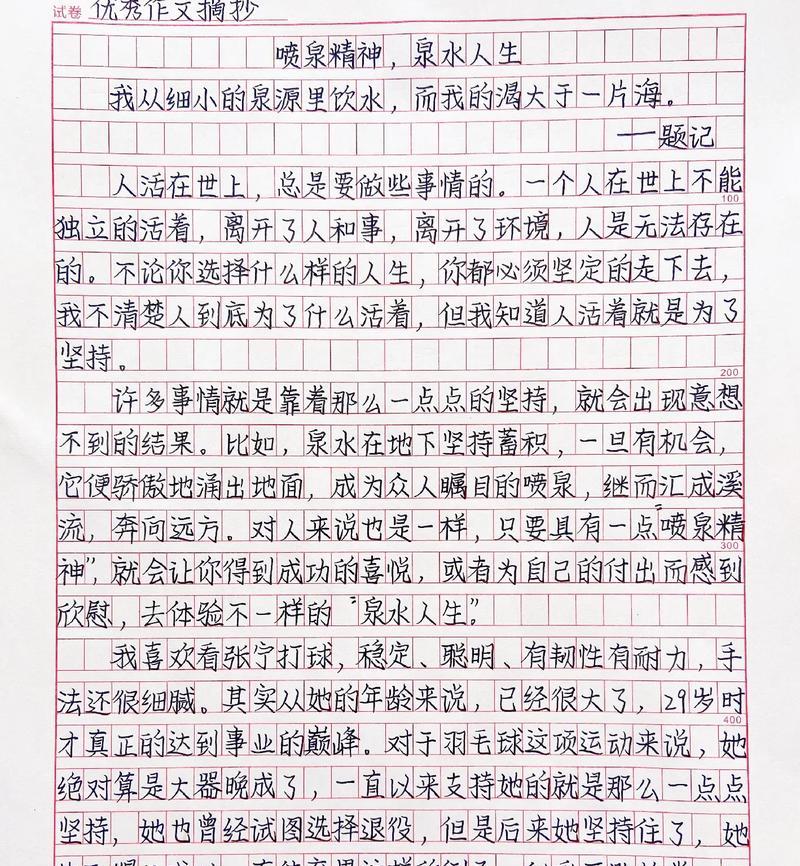 试卷 优秀作文摘抄
喷泉精神，泉水人生
我从细小的泉源里饮水，而我的渴大于一片海。
——题记
人活在世上，总是要做些事情的。一个人在世上不能
100
独立的活着，离开了人和事，离开了环境，人是无法存在
的。不论你选择什么样的人生，你都必须坚定的走下去，
我不清楚人到底为了什么活着，但我知道人活着就是为了
坚持。
200
许多事情就是靠着那么一点点的坚持，就会出现意想
不到的结果。比如，泉水在地下坚持蓄积，一旦有机会，
它便骄傲地涌出地面，成为众人瞩目的喷泉，继而汇成溪
流，奔向远方。对人来说也是一样，只要具有一点“喷泉精
300
神”，就会让你得到成功的喜悦，或者为自己的付出而感到
欣慰，去体验不一样的“泉水人生”。
我喜欢看张宁打球，稳定、聪明、有韧性有耐力，手
法还很细腻。其实从她的年龄来说，已经很大了，29岁时
400
才真正的达到事业的巅峰。对于羽毛球这项运动来说，她
绝对算是大器晚成了，一直以来支持她的就是那么一点点
坚持，她也曾经试图选择退役，但是后来她坚持住了，她